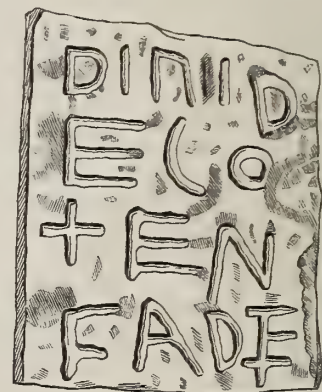 DINID
ECO
+ EN
FADE